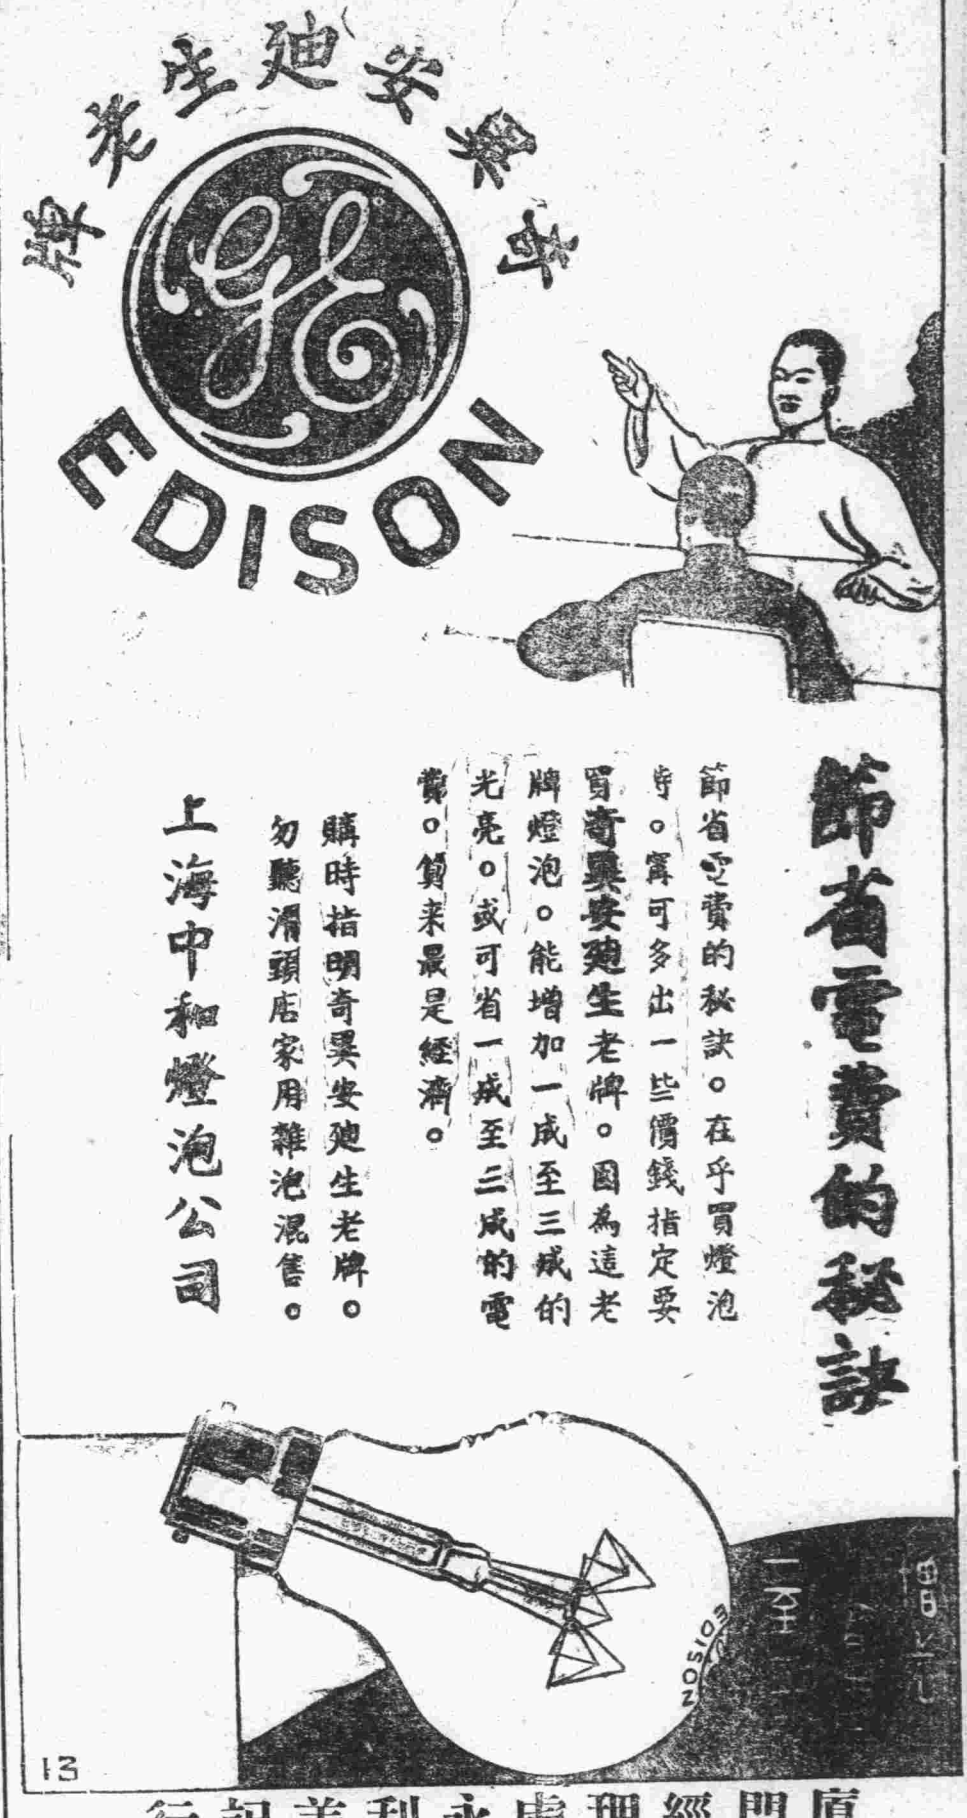 奇異安廸生老牌
EDISON
節省電費的秘訣
節省電費的秘訣。在乎買燈泡
時。寗可多出一些價錢指定要
買奇異安廸生老牌。因為這老
牌燈泡。能增加一成至三成的
光亮。或可省一成至三成的電
費。算来最是經濟。
購時指明奇異安廸生老牌。
勿聽滑頭店家用雜泡混售。
上海中和燈泡公司
EDISON
13
廈門經理處永利美記行